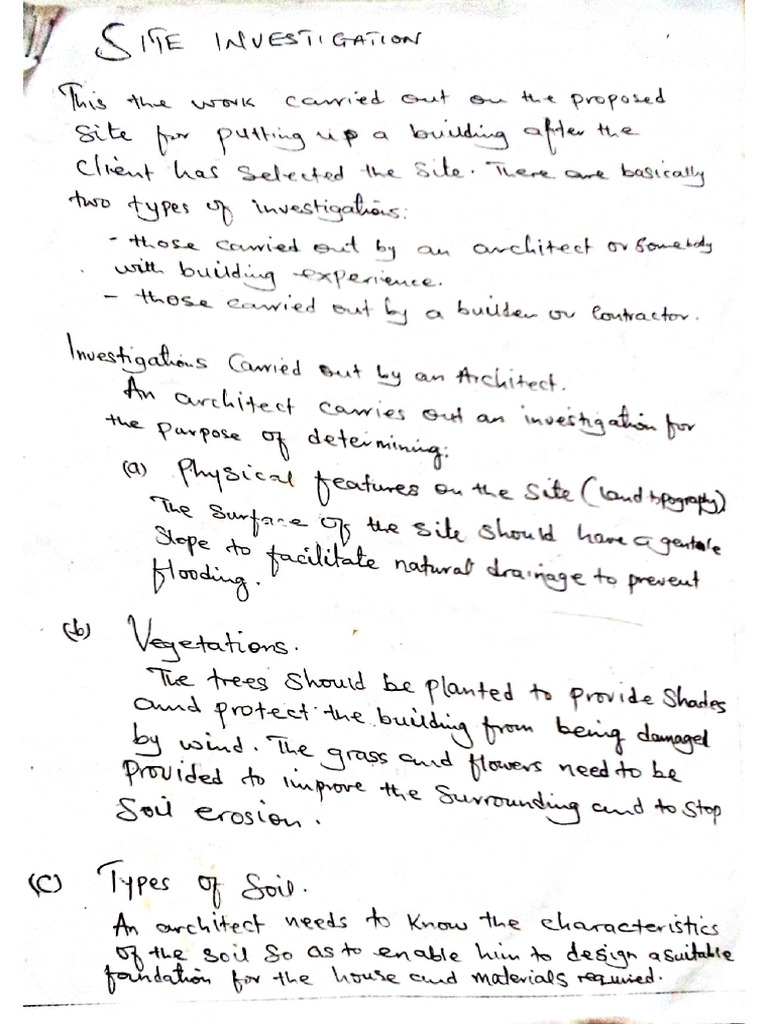 SITE INVESTIGATION
This the work carried out on the proposed
site for putting up a building after the
Client has selected the site. There are basically
two types of investigations:
- those carried out by an architect or somebody
with building experience.
- those carried out by a builder or Contractor.
Investigations Carried out by an Architect.
An architect carries out an investigation for
the purpose of determining:
(a) Physical features on the site (land topography)
The surface of the site should have a gentle
slope to facilitate natural drainage to prevent
flooding.
(b) Vegetations.
The trees should be planted to provide shades
and protect the building from being damaged
by wind. The grass and flowers need to be
provided to improve the surrounding and to stop
soil erosion.
(c) Types of Soil.
An architect needs to know the characteristics
of the soil so as to enable him to design a suitable
foundation for the house and materials required.